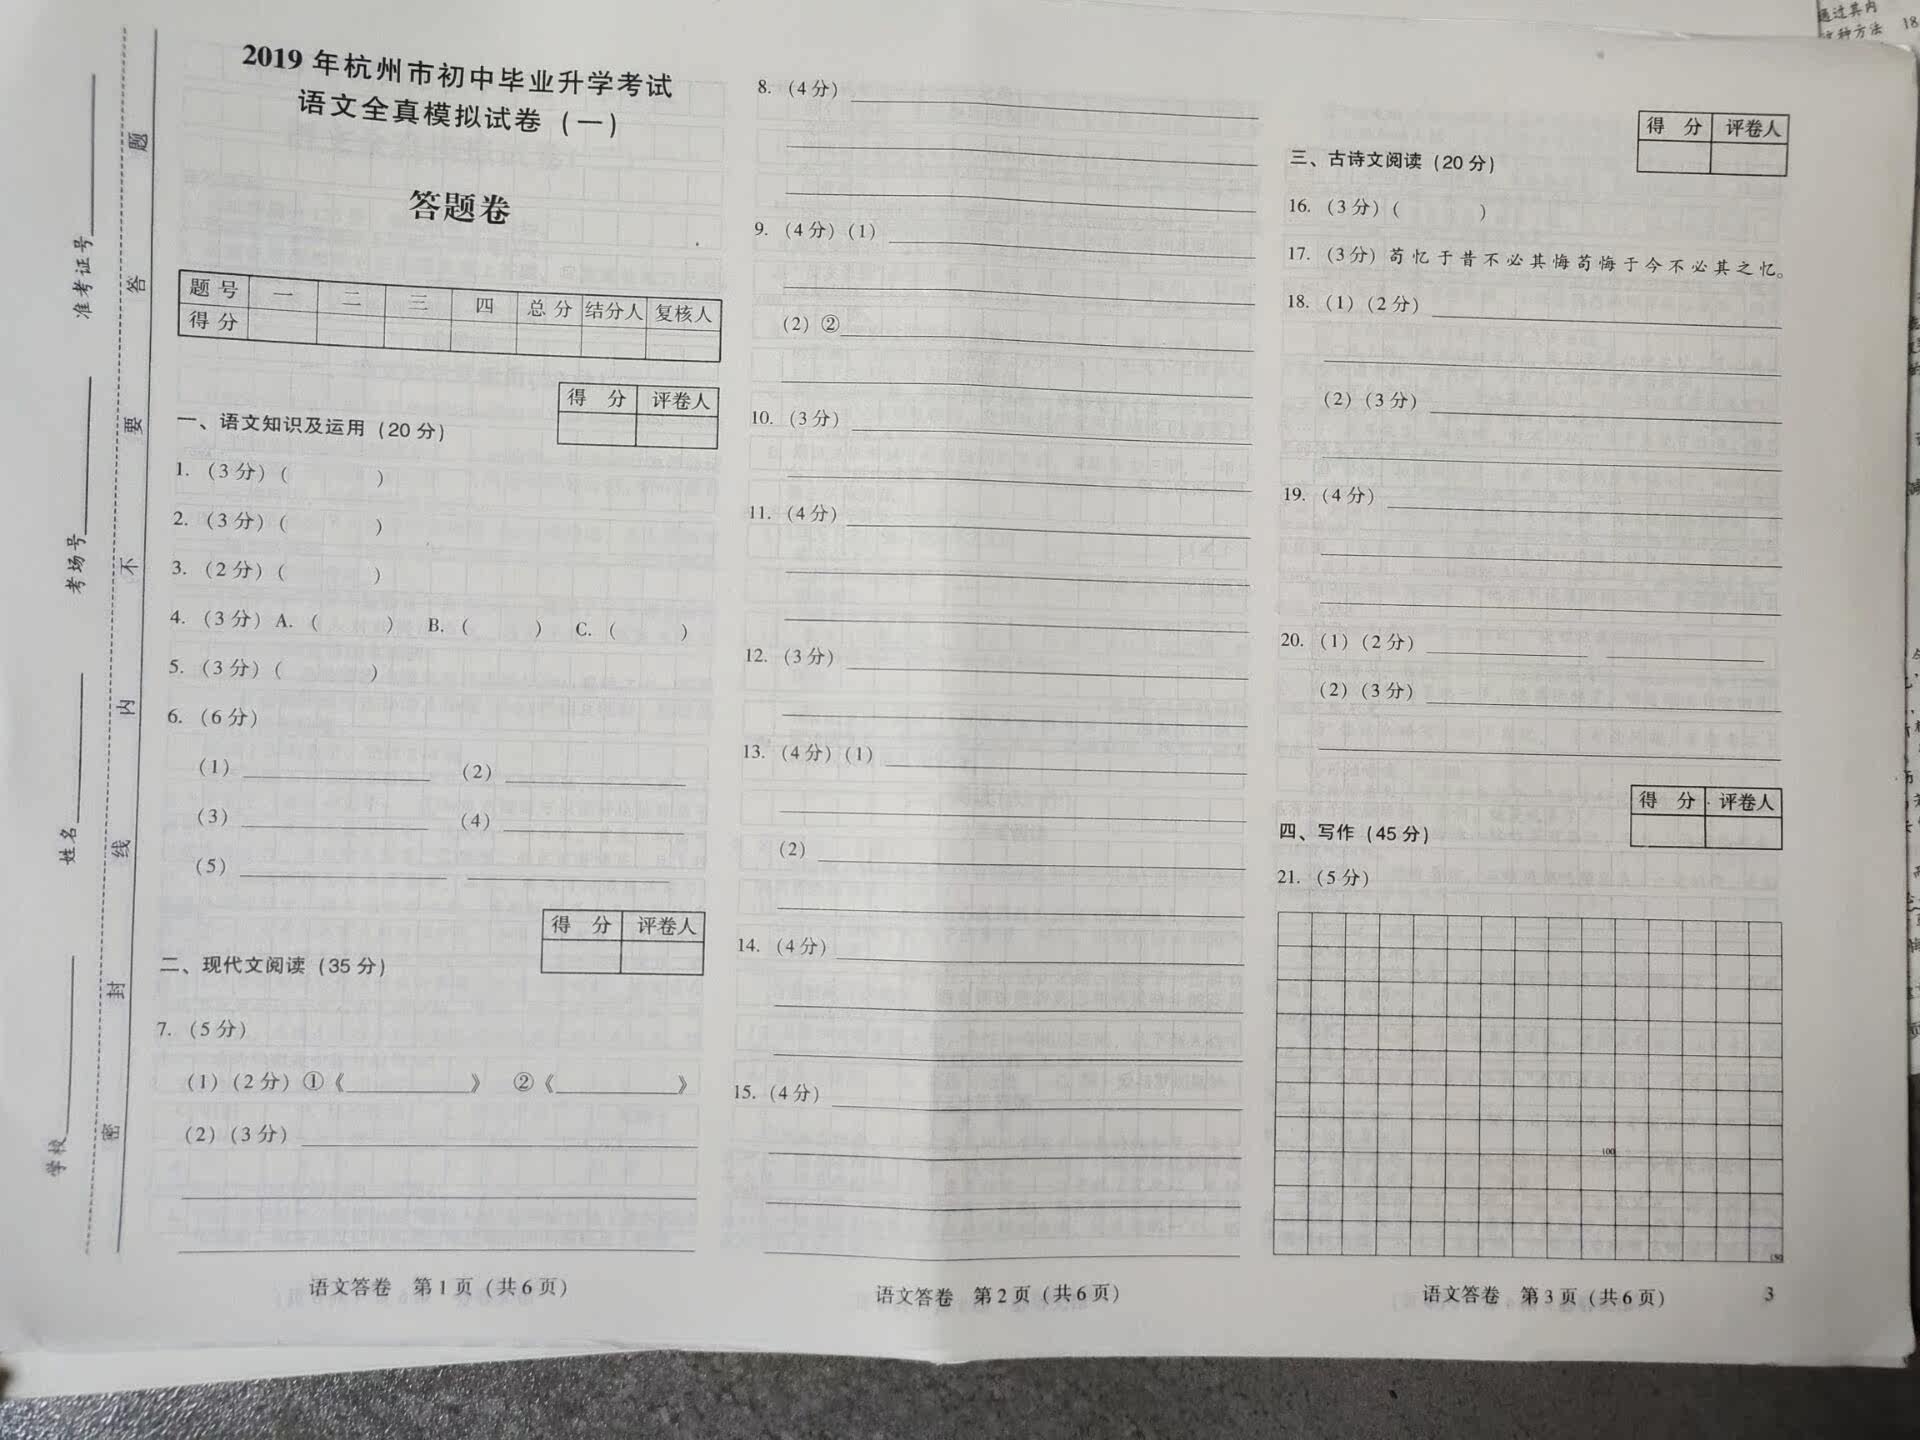 2019 年杭州市初中毕业升学考试
语文全真模拟试卷（一）
答题卷
题 号 一 二 三 四 总 分 结分人 复核人
得 分
得 分 评卷人
一、语文知识及运用（20 分）
1.（3 分）（ ）
2.（3 分）（ ）
3.（2 分）（ ）
4.（3 分）A.（ ） B.（ ） C.（ ）
5.（3 分）（ ）
6.（6 分）
（1） （2）
（3） （4）
（5）
得 分 评卷人
二、现代文阅读（35 分）
7.（5 分）
（1）（2 分）①《 》 ②《 》
（2）（3 分）
语文答卷 第 1 页（共 6 页）
8.（4 分）
9.（4 分）（1）
（2）②
10.（3 分）
11.（4 分）
12.（3 分）
13.（4 分）（1）
（2）
14.（4 分）
15.（4 分）
语文答卷 第 2 页（共 6 页）
得 分 评卷人
三、古诗文阅读（20 分）
16.（3 分）（ ）
17.（3 分）苟忆于昔不必其悔苟悔于今不必其之忆。
18.（1）（2 分）
（2）（3 分）
19.（4 分）
20.（1）（2 分）
（2）（3 分）
得 分 评卷人
四、写作（45 分）
21.（5 分）
100
150
语文答卷 第 3 页（共 6 页） 3
学校 姓名 考场号 准考证号
密 封 线 内 不 要 答 题
通过其内
这种方法 18